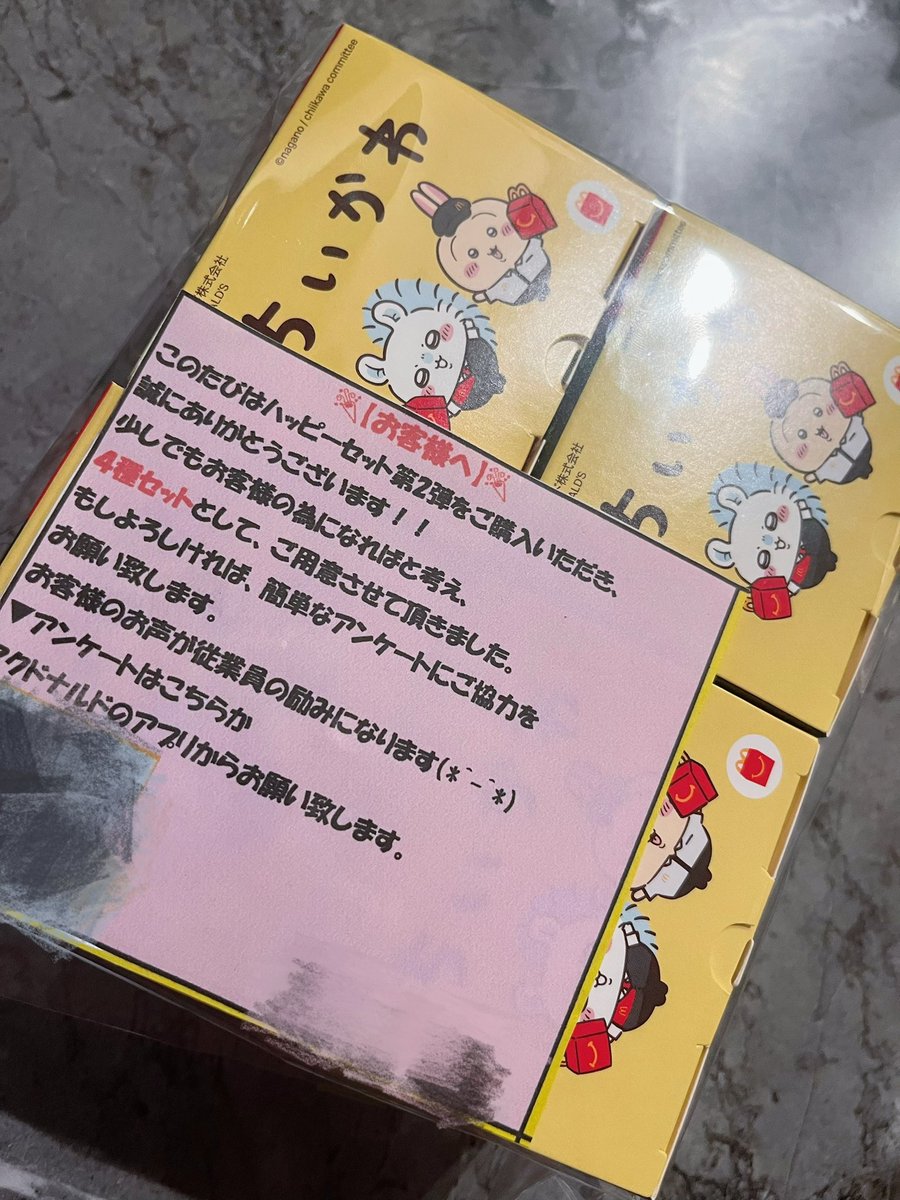 ©nagano / chiikawa committee
ちいかわ
株式会社
ALD'S
committee
株式会社
ALD'S
【お客様へ】
このたびはハッピーセット第2弾をご購入いただき、
誠にありがとうございます！！
少しでもお客様の為になればと考え、
4種セットとして、ご用意させて頂きました。
もしよろしければ、簡単なアンケートにご協力を
お願い致します。
お客様のお声が従業員の励みになります(*^-^*)
▼アンケートはこちらか
マクドナルドのアプリからお願い致します。